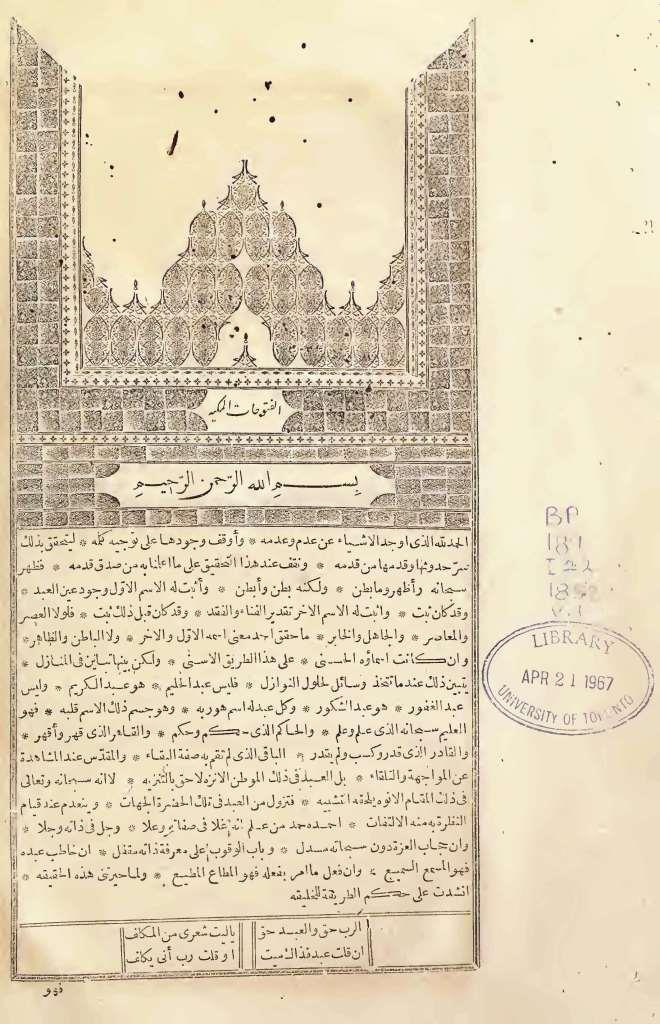 الفتوحات المكيه
بسم الله الرّحمن الرّحيم
الحمد لله الذى اوجد الاشياء عن عدم وعدمه * وأوقف وجودها على توجيه كلمه * ليتحقق بذلك
سرّ حدوثها وقدمها من قدمه * ونقف عند هذا التحقيق على ما اعلنا به من صدق قدمه * فظهر
سبحانه وأظهر وما بطن * ولكنه بطن وأبطن * وأثبت له الاسم الاوّل وجود عين العبد *
وقد كان ثبت * واثبت له الاسم الاخر تقدير الفناء والفقد * وقد كان قبل ذلك ثبت * فلولا العصر
والمعاصر * والجاهل والخابر * ما حقق احد معنى اسمه الاوّل والاخر * ولا الباطن والظاهر *
وان كانت اسماؤه الحسنى * على هذا الطريق الاسنى * ولكن بينها تباين فى المنازل *
يتبين ذلك عند ما تتخذ وسائل لحلول النوازل * فليس عبد الحليم * هو عبد الكريم * وليس
عبد الغفور * هو عبد الشكور * وكل عبد له اسم هو ربه * وهو جسم ذلك الاسم قلبه * فهو
العليم سبحانه الذى علم وعلم * والحاكم الذى حكم وحكم * والقاهر الذى قهر وأقهر *
والقادر الذى قدر وكسب ولم يقدر * الباقى الذى لم تقم به صفة البقاء * والمقدّس عند المشاهدة
عن المواجهة والتلقاء * بل العبد فى ذلك الموطن الانزه لاحق بالتنزيه * لا انه سبحانه وتعالى
فى ذلك المقام الانوه يلحقه التشبيه * فتزول من العبد فى تلك الحضرة الجهات * وينعدم عند قيام
النظرة به منه الالتفات * احمده حمد من علم انه علا فى صفاته وعلا * وجل فى ذاته وجلا *
وان حجاب العزة دون سبحانه مسدل * وباب الوقوف على معرفة ذاته مقفل * ان خاطب عبده
فهو المسمع السميع * وان فعل ما امر بفعله فهو المطاع المطيع * ولما حيرتنى هذه الحقيقه *
انشدت على حكم الطريقة للخليقه
الرب حق والعبد حق يا ليت شعرى من المكلف
ان قلت عبد فذاك ميت او قلت رب أنى يكلف
BP
181
I22
18
v.1
LIBRARY
APR 21 1967
UNIVERSITY OF TORONTO